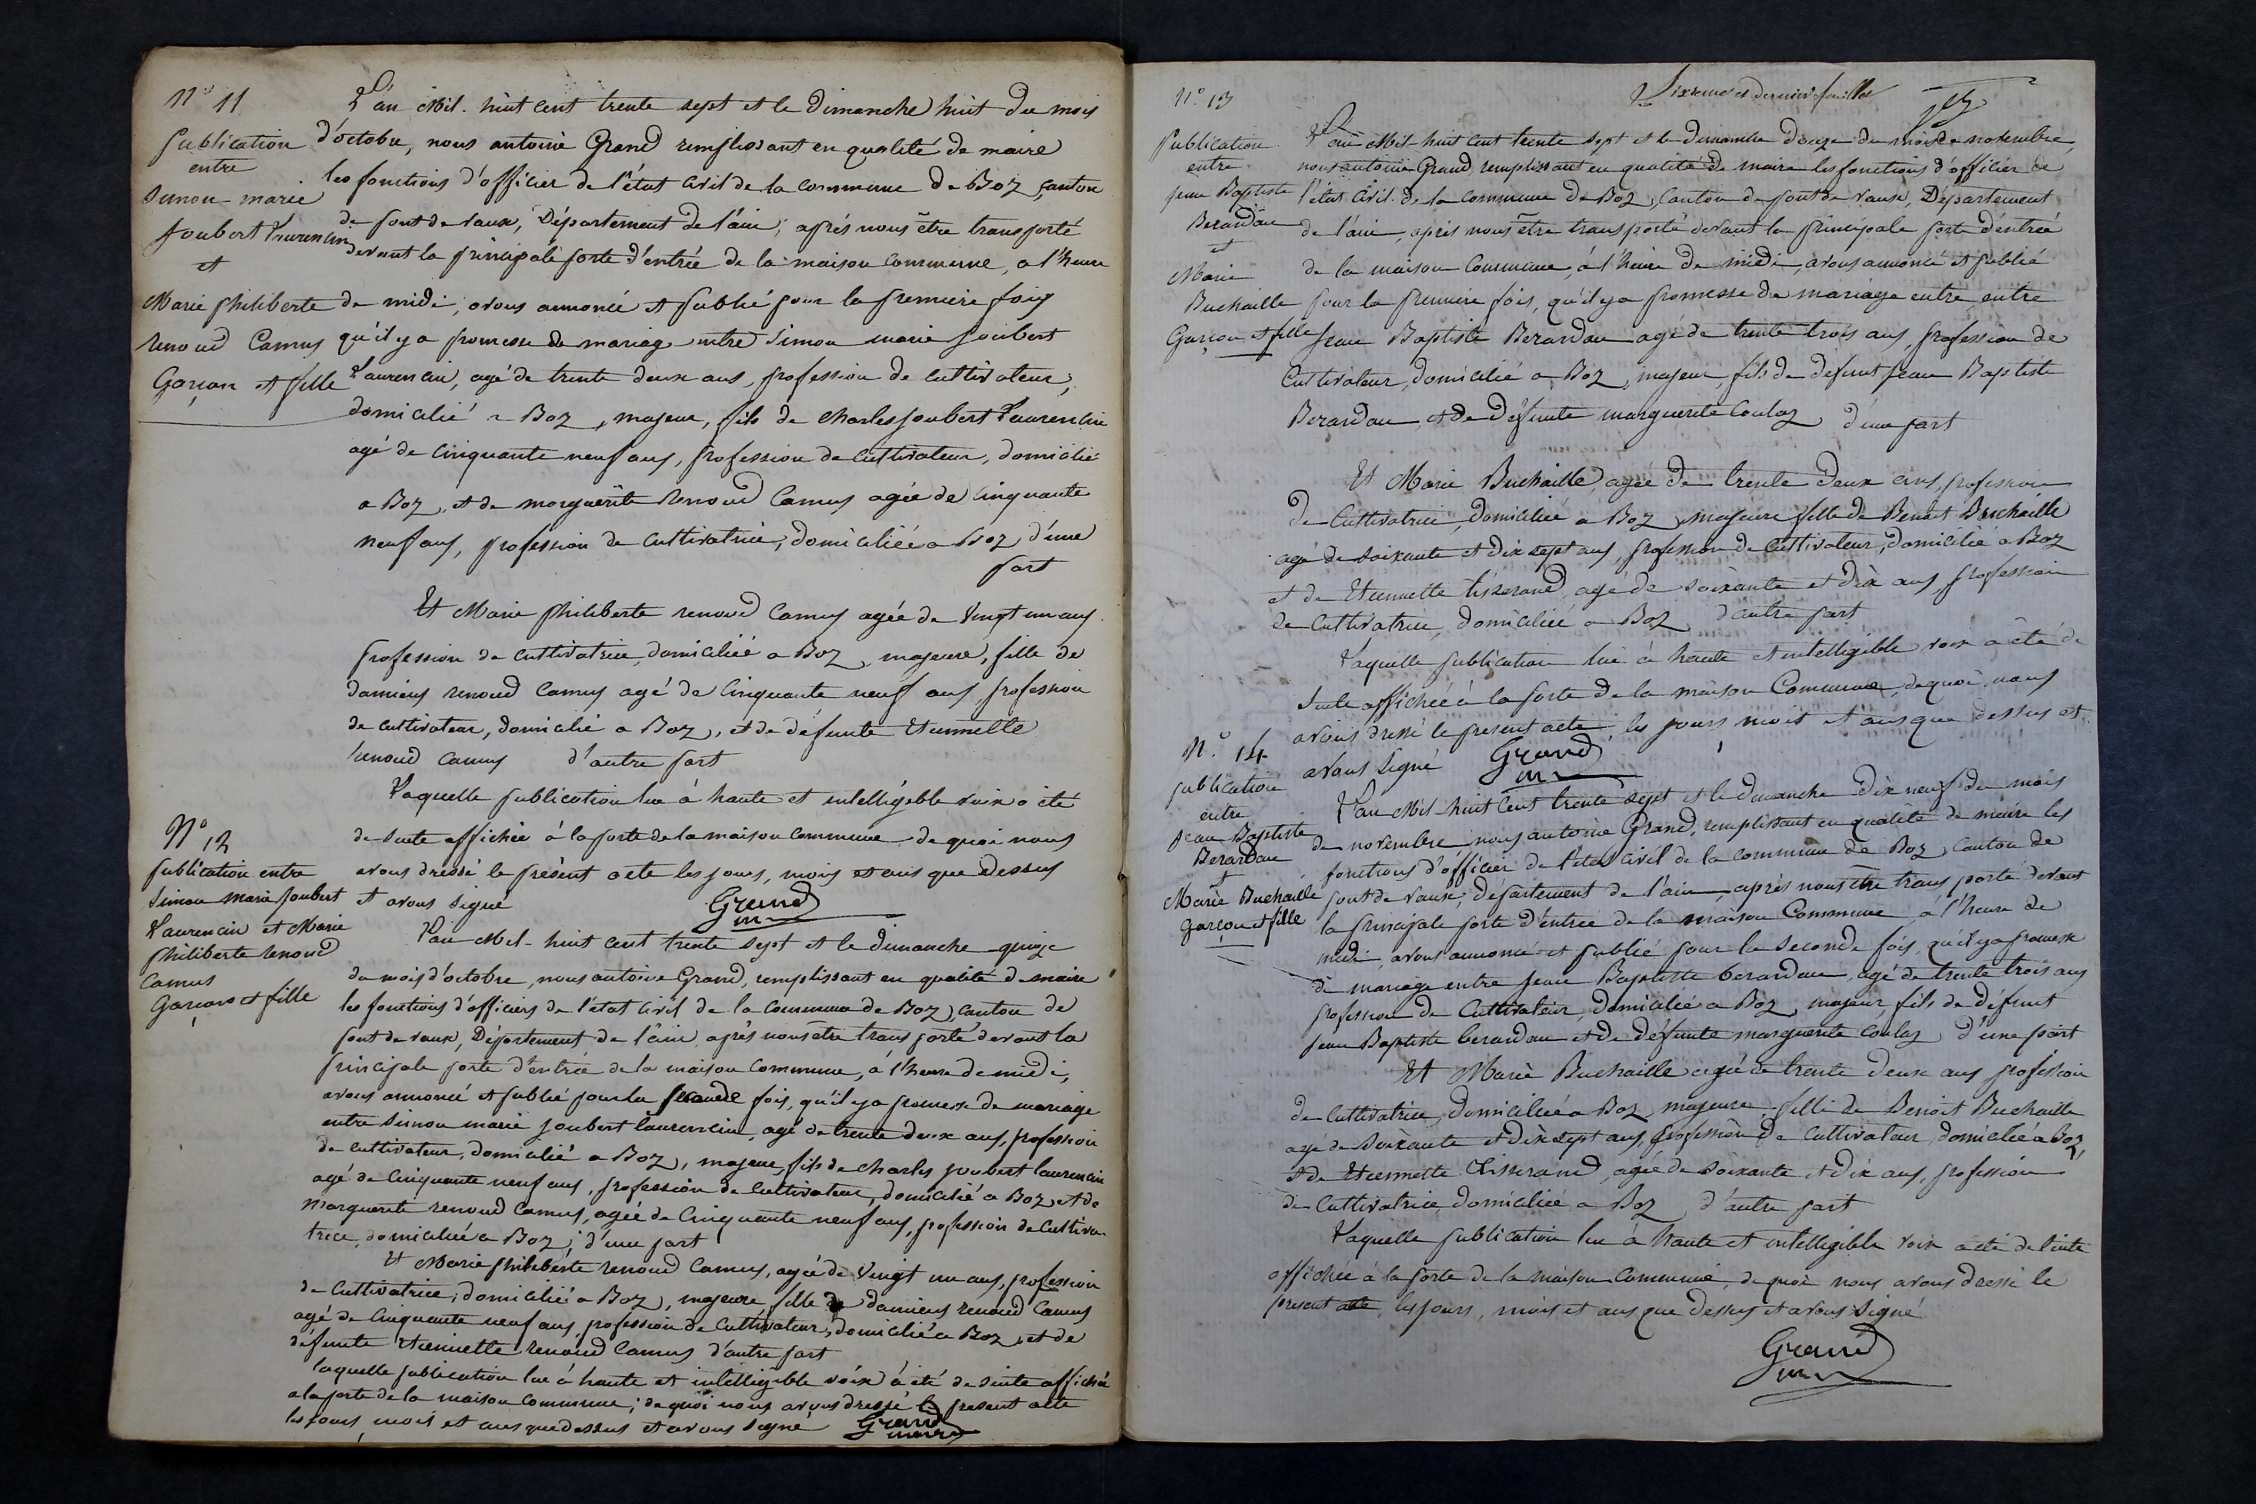 N° 11
Publication
entre
Simon marie
Joubert Laurencin
et
Marie philiberte
renoud Camus
Garçon et fille
L'an Mil huit cent trente sept et le Dimanche huit du mois
d'octobre, nous antoine Grand remplissant en qualité de maire
les fonctions d'officier de l'état civil de la commune de Boz, canton
de pont de vaux, Département de l'ain, après nous être transporté
devant la principale porte d'entrée de la maison commune, a l'heure
de midi, avons annoncé et publié pour la premiere fois
qu'il y a promesse de mariage entre Simon marie Joubert
Laurencin, agé de trente deux ans, profession de cultivateur,
domicilié a Boz, majeur, fils de Charles Joubert Laurencin
agé de cinquante neuf ans, profession de cultivateur, domicilié
a Boz, et de marguerite renoud Camus agée de cinquante
neuf ans, profession de cultivatrice, domiciliée a Boz d'une
part
Et Marie philiberte renoud Camus agée de vingt un ans
profession de cultivatrice, domiciliée a Boz, majeure, fille de
damiens renoud Camus agé de cinquante neuf ans, profession
de cultivateur, domicilié a Boz, et de défunte Etiennette
renoud Camus d'autre part
Laquelle publication lue à haute et intelligible voix a été
de suite affichée à la porte de la maison commune de quoi nous
avons dressé le présent acte les jours, mois et ans que dessus
et avons signé Grand
N° 12
publication entre
Simon marie Joubert
Laurencin et Marie
philiberte renoud
Camus
Garçons et fille
L'an Mil huit cent trente sept et le dimanche quinze
du mois d'octobre, nous antoine Grand, remplissant en qualité de maire
les fonctions d'officiers de l'état civil de la commune de Boz, canton de
pont de vaux, Département de l'ain après nous être transporté devant la
principale porte d'entrée de la maison commune, à l'heure de midi,
avons annoncé et publié pour la seconde fois, qu'il y a promesse de mariage
entre Simon marie Joubert laurencin, agé de trente deux ans, profession
de cultivateur, domicilié a Boz, majeur, fils de Charles Joubert laurencin
agé de cinquante neuf ans, profession de cultivateur, domicilié a Boz, et de
marguerite renoud Camus, agée de cinquante neuf ans, profession de cultiva-
trice, domiciliée a Boz, d'une part
Et Marie philiberte renoud Camus, agée de vingt un ans, profession
de cultivatrice, domicilié a Boz, majeure, fille de damiens renoud Camus
agé de cinquante neuf ans, profession de cultivateur, domicilié a Boz, et de
défunte Etiennette renoud Camus d'autre part
laquelle publication lue à haute et intelligible voix à été de suite affichée
a la porte de la maison commune; de quoi nous avons dressé le present acte
les jours, mois et ans que dessus et avons signé Grand
maire
Sixieme et dernier feuillet
N° 13
Publication
entre
jean Baptiste
Berardan
et
Marie
Buchaille
Garçon et fille
L'an Mil huit cent trente sept et le dimanche douze du mois de novembre,
nous antoine Grand remplissant en qualité de maire les fonctions d'officier de
l'état civil de la commune de Boz, canton de pont de vaux, Département
de l'ain, après nous être transporté devant la principale porte d'entrée
de la maison commune, à l'heure de midi, avons annoncé et publié
pour la premiere fois, qu'il y a promesse de mariage entre entre
Jean Baptiste Berardan agé de trente trois ans, profession de
cultivateur, domicilié a Boz, majeur, fils de defunt jean Baptiste
Berardan et de défunte marguerite Coulaz d'une part
Et Marie Buchaille, agée de trente deux ans, profession
de cultivatrice, domiciliée a Boz majeure fille de Benoit Buchaille
agé de soixante et dix sept ans, profession de cultivateur, domicilié a Boz
et de Etiennette tisserand, agé de soixante et dix ans, profession
de cultivatrice, domiciliée a Boz d'autre part
Laquelle publication lue à haute et intelligible voix a été de
suite affichée à la porte de la maison commune, de quoi nous
avons dressé le present acte, les jours mois et ans que dessus et
avons signé Grand
N° 14
publication
entre
jean Baptiste
Berardan
et
Marie Buchaille
garçon et fille
L'an Mil huit cent trente sept et le dimanche dix neuf du mois
de novembre nous antoine Grand, remplissant en qualité de maire les
fonctions d'officier de l'état civil de la commune de Boz, canton de
pont de vaux, département de l'ain, après nous être transporté devant
la principale porte d'entrée de la maison Commune à l'heure de
midi, avons annoncé et publié pour la seconde fois, qu'il y a promesse
de mariage entre jean Baptiste berardan, agé de trente trois ans
profession de Cultivateur, domicilié a Boz, majeur, fils de défunt
jean Baptiste berardan et de défunte marguerite Coulaz d'une part
Et Marie Buchaille agée de trente deux ans profession
de cultivatrice, domiciliée a Boz, majeure fille de Benoit Buchaille
agé de soixante et dix sept ans, profession de cultivateur, domicilié a Boz,
et de Etiennette tisserand, agée de soixante et dix ans, profession
de cultivatrice, domiciliée a Boz d'autre part
Laquelle publication lue à haute et intelligible voix a été de suite
affichée à la porte de la maison Commune, de quoi nous avons dressé le
present acte les jours, mois et ans que dessus et avons signé
Grand